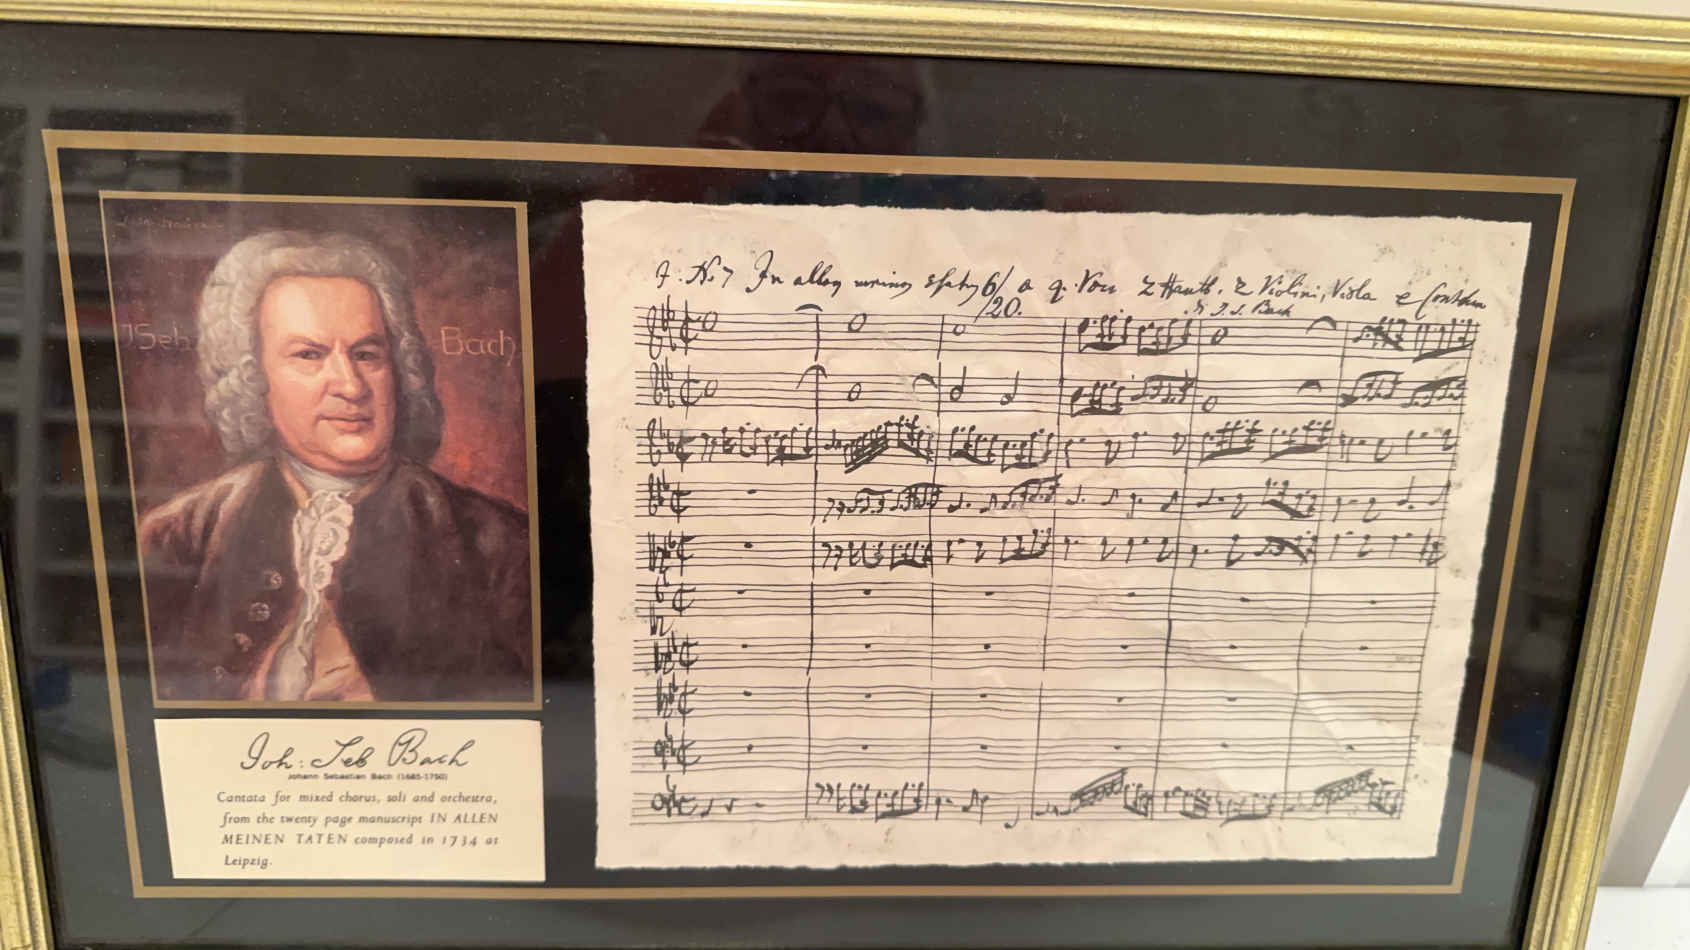 JSeb Bach
J. No 7 In allen meinen Thaten 6/ a 4. Voci 2 Hautb. 2 Violini, Viola e Contin
/20. di J. S. Bach
Joh: Seb Bach
Johann Sebastian Bach (1685-1750)
Cantata for mixed chorus, soli and orchestra,
from the twenty page manuscript IN ALLEN
MEINEN TATEN composed in 1734 at
Leipzig.